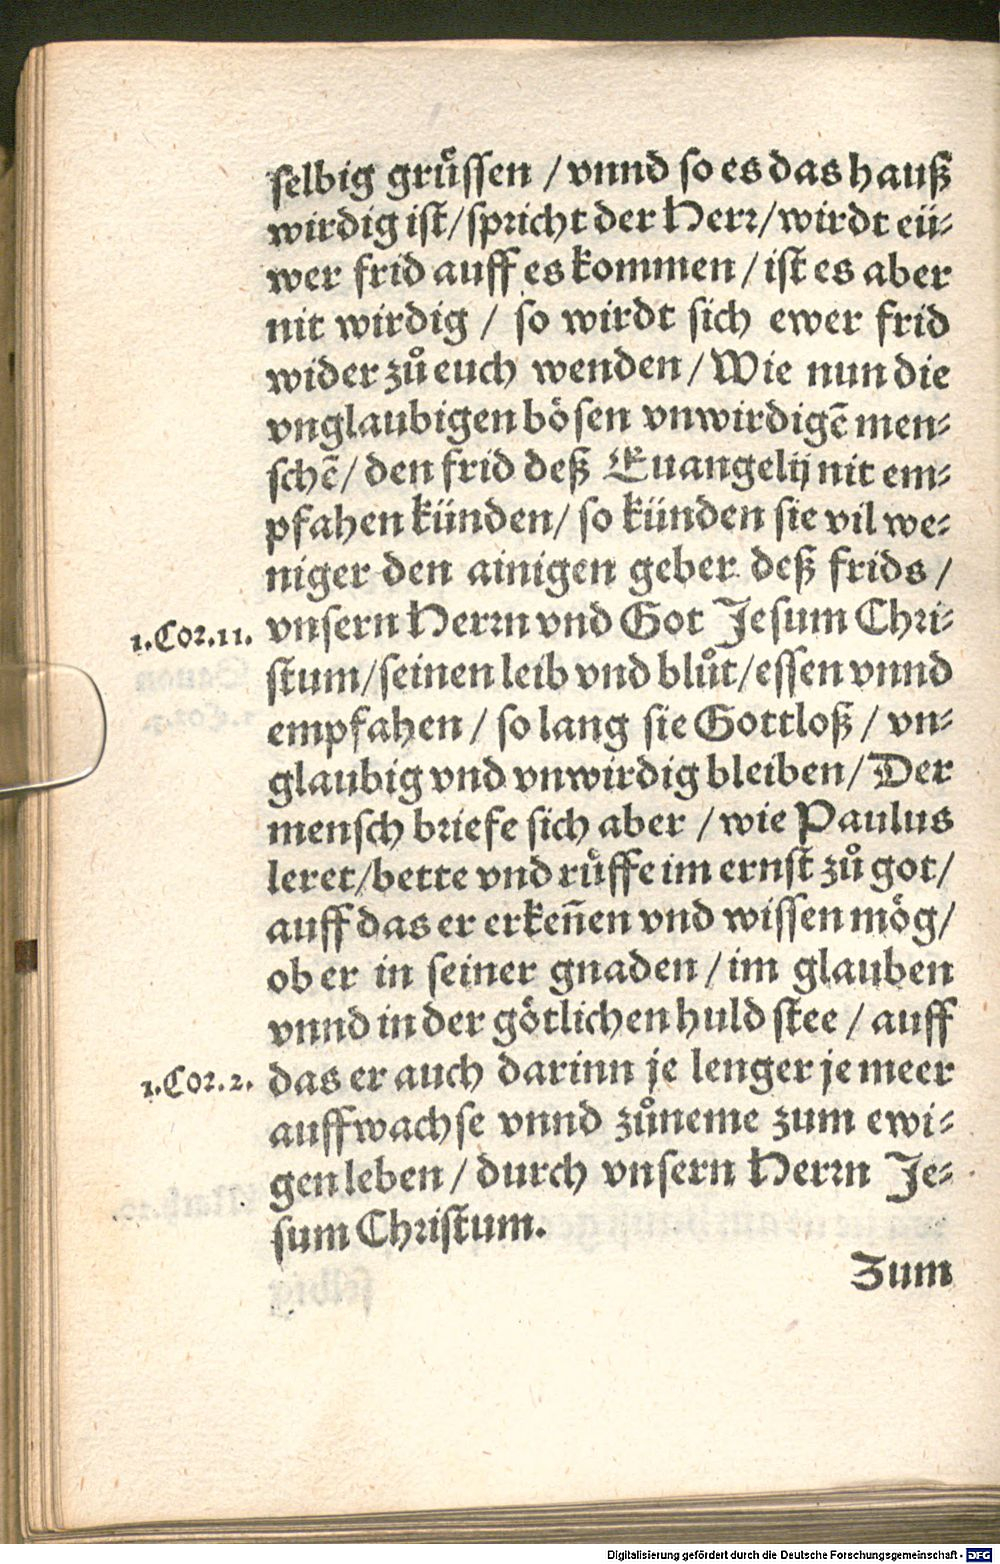 selbig gruͤssen / vnnd so es das hauß
wirdig ist/spricht der Herr/wirdt eü⸗
wer frid auff es kommen / ist es aber
nit wirdig / so wirdt sich ewer frid
wider zuͦ euch wenden / Wie nun die
vnglaubigen boͤsen vnwirdigẽ men⸗
schẽ / den frid deß Euangelij nit em⸗
pfahen künden / so künden sie vil we⸗
niger den ainigen geber deß frids /
1.Cor.11. vnsern Herrn vnd Got Jesum Chri⸗
stum/seinen leib vnd bluͦt/essen vnnd
empfahen / so lang sie Gottloß / vn⸗
glaubig vnd vnwirdig bleiben / Der
mensch briefe sich aber / wie Paulus
leret/bette vnd ruͤffe im ernst zuͦ got/
auff das er erkeñen vnd wissen moͤg/
ob er in seiner gnaden / im glauben
vnnd in der goͤtlichen huld stee / auff
1.Cor.2. das er auch darinn je lenger je meer
auffwachse vnnd zuͦneme zum ewi⸗
gen leben / durch vnsern Herrn Je⸗
sum Christum.
Zum
Digitalisierung gefördert durch die Deutsche Forschungsgemeinschaft - DFG